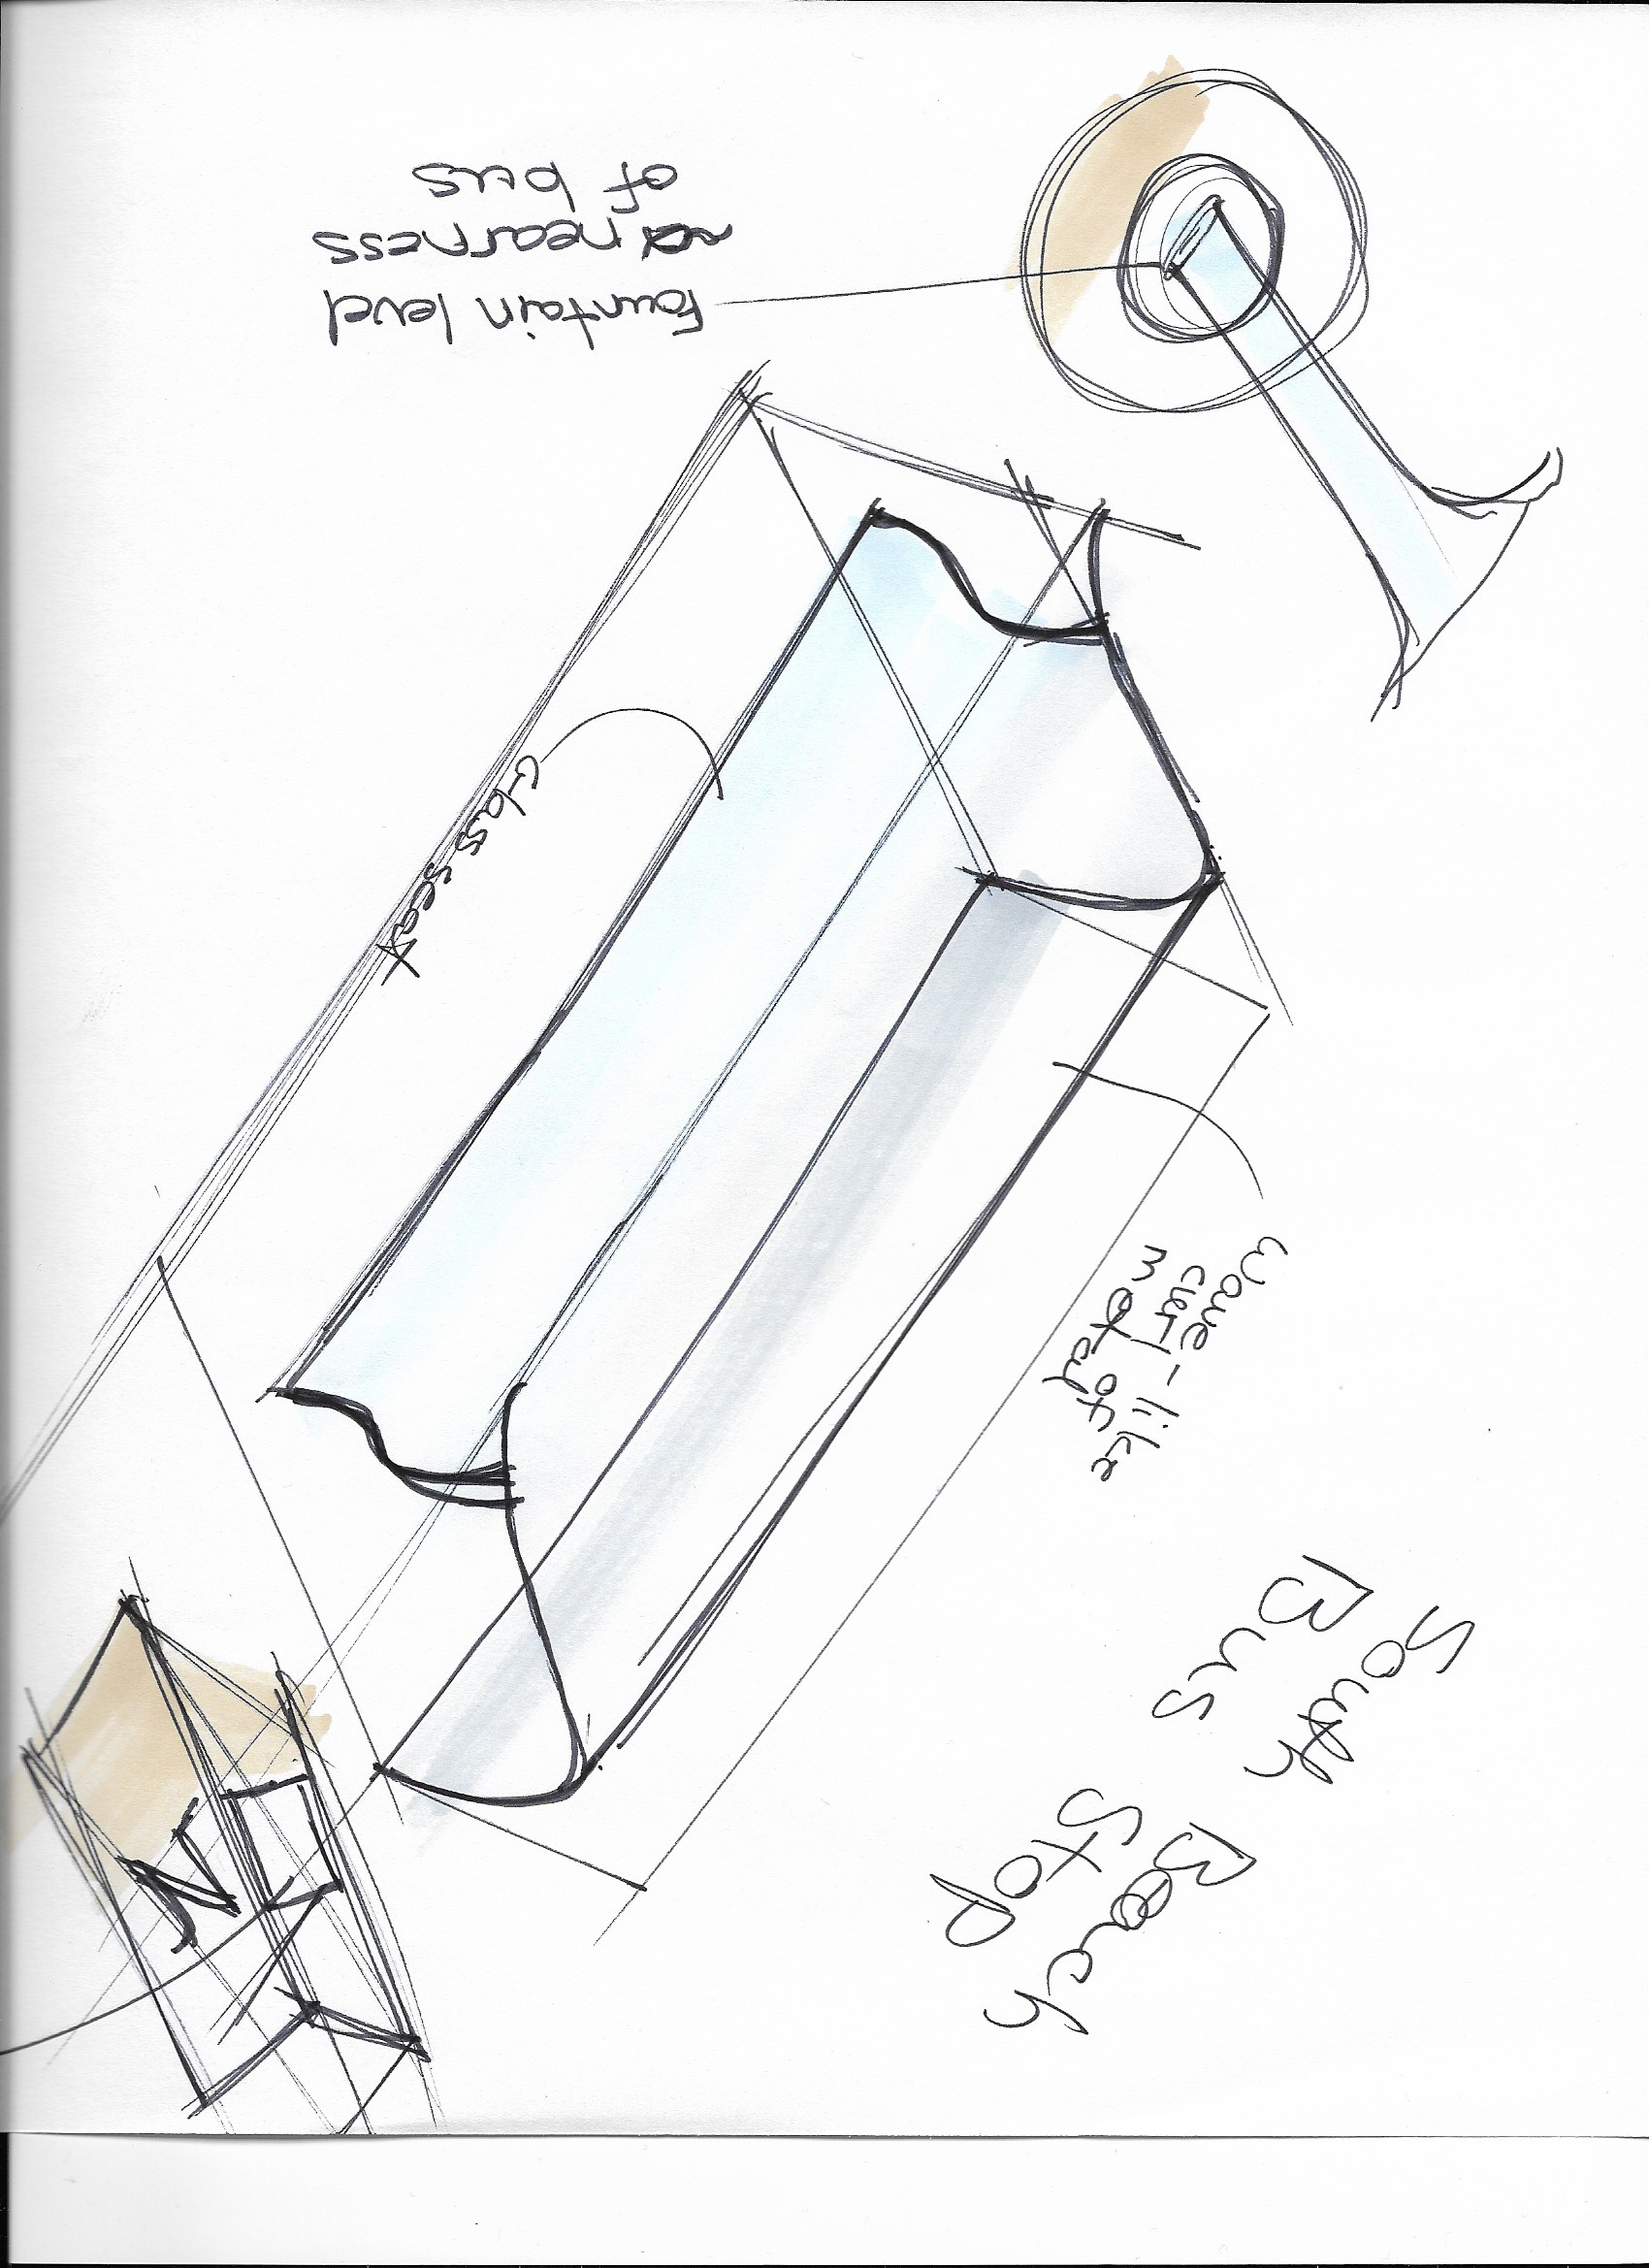 South Beach
Bus Stop
Wave-like
curl of
metal
Glass seat
Fountain level
~α nearness
of bus
N